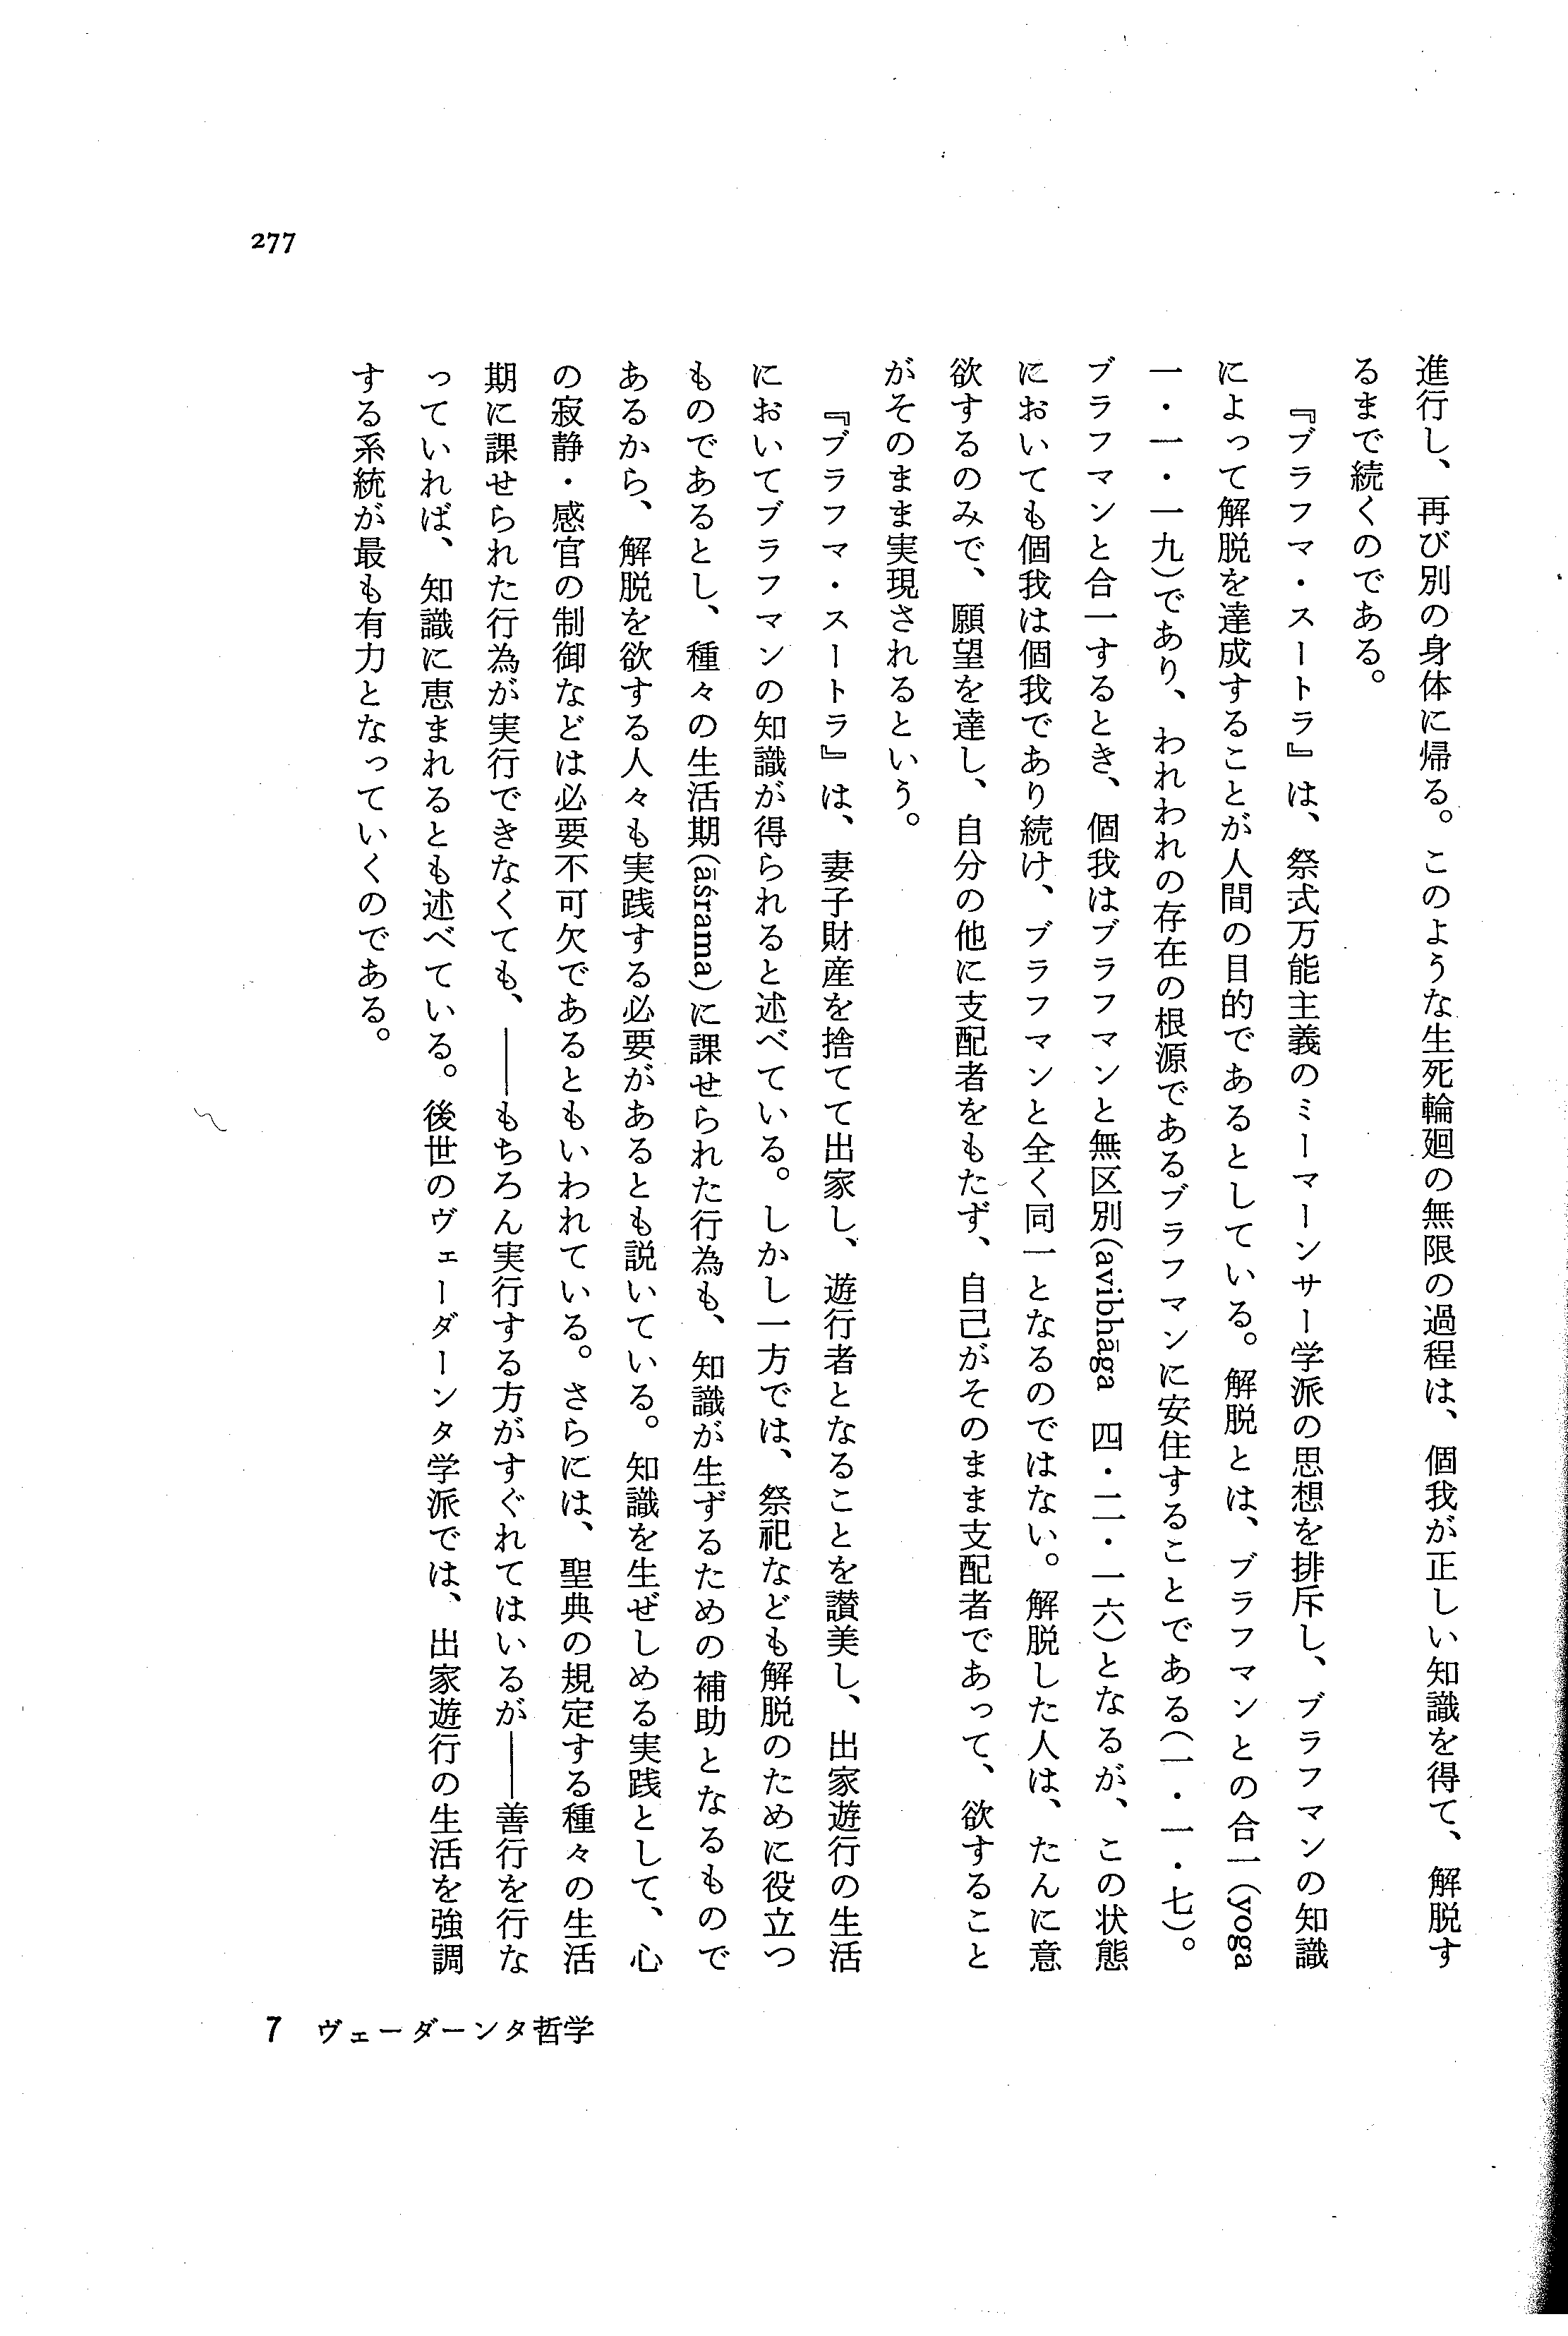 進行し、再び別の身体に帰る。このような生死輪廻の無限の過程は、個我が正しい知識を得て、解脱す
るまで続くのである。
『ブラフマ・スートラ』は、祭式万能主義のミーマーンサー学派の思想を排斥し、ブラフマンの知識
によって解脱を達成することが人間の目的であるとしている。解脱とは、ブラフマンとの合一(yoga
一・一・一九)であり、われわれの存在の根源であるブラフマンに安住することである(一・一・七)。
ブラフマンと合一するとき、個我はブラフマンと無区別(avibhāga 四・二・一六)となるが、この状態
においても個我は個我であり続け、ブラフマンと全く同一となるのではない。解脱した人は、たんに意
欲するのみで、願望を達し、自分の他に支配者をもたず、自己がそのまま支配者であって、欲すること
がそのまま実現されるという。
『ブラフマ・スートラ』は、妻子財産を捨てて出家し、遊行者となることを讃美し、出家遊行の生活
においてブラフマンの知識が得られると述べている。しかし一方では、祭祀なども解脱のために役立つ
ものであるとし、種々の生活期(āśrama)に課せられた行為も、知識が生ずるための補助となるもので
あるから、解脱を欲する人々も実践する必要があるとも説いている。知識を生ぜしめる実践として、心
の寂静・感官の制御などは必要不可欠であるともいわれている。さらには、聖典の規定する種々の生活
期に課せられた行為が実行できなくても、――もちろん実行する方がすぐれてはいるが――善行を行な
っていれば、知識に恵まれるとも述べている。後世のヴェーダーンタ学派では、出家遊行の生活を強調
する系統が最も有力となっていくのである。
277
7 ヴェーダーンタ哲学